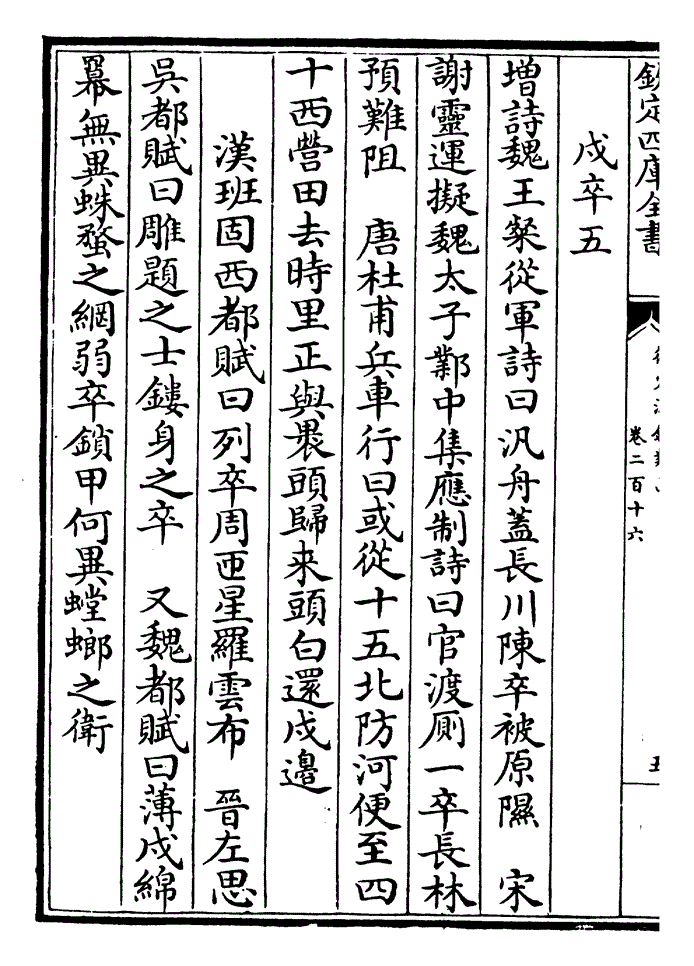 欽定四庫全書
卷二百十六
五
戍卒五
増詩魏王粲從軍詩曰汎舟蓋長川陳卒被原隰　宋
謝靈運擬魏太子鄴中集應制詩曰官渡厠一卒長林
預難阻　唐杜甫兵車行曰或從十五北防河便至四
十西營田去時里正與褁頭歸来頭白還戍邊
漢班固西都賦曰列卒周匝星羅雲布　晉左思
吳都賦曰雕題之士鏤身之卒　又魏都賦曰薄戍綿
冪無異蛛蝥之網弱卒鎖甲何異螳蜋之衛